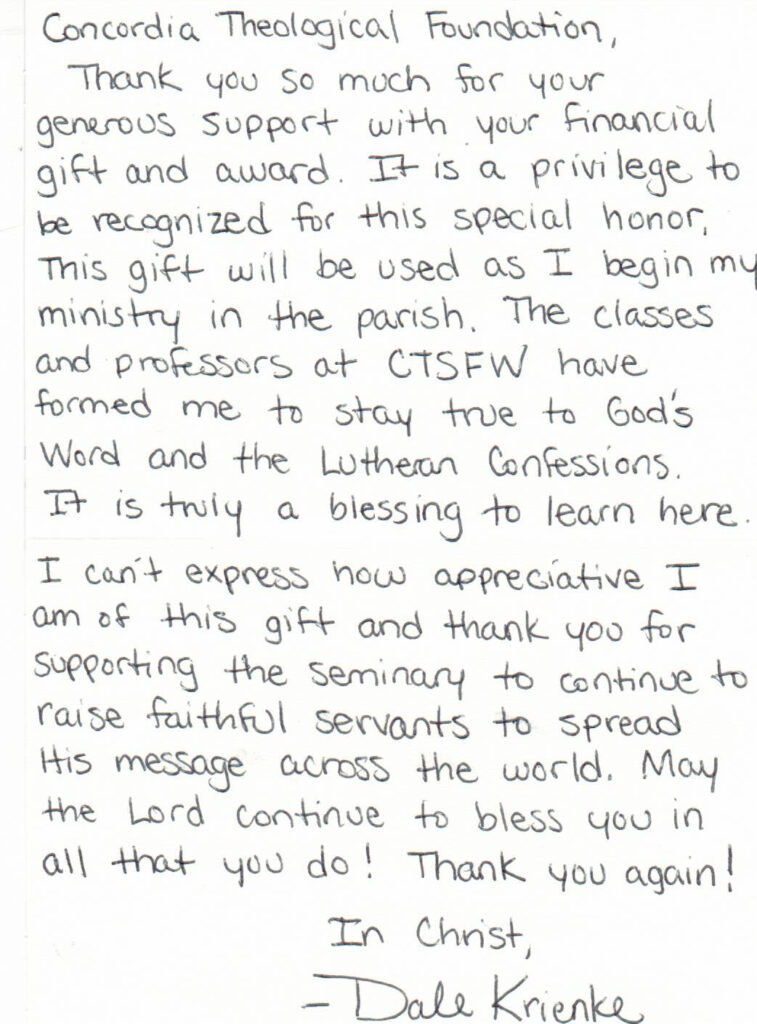 Concordia Theological Foundation,
Thank you so much for your
generous support with your financial
gift and award. It is a privilege to
be recognized for this special honor.
This gift will be used as I begin my
ministry in the parish. The classes
and professors at CTSFW have
formed me to stay true to God's
Word and the Lutheran Confessions.
It is truly a blessing to learn here.
I can't express how appreciative I
am of this gift and thank you for
supporting the seminary to continue to
raise faithful servants to spread
His message across the world. May
the Lord continue to bless you in
all that you do! Thank you again!
In Christ,
- Dale Krienke